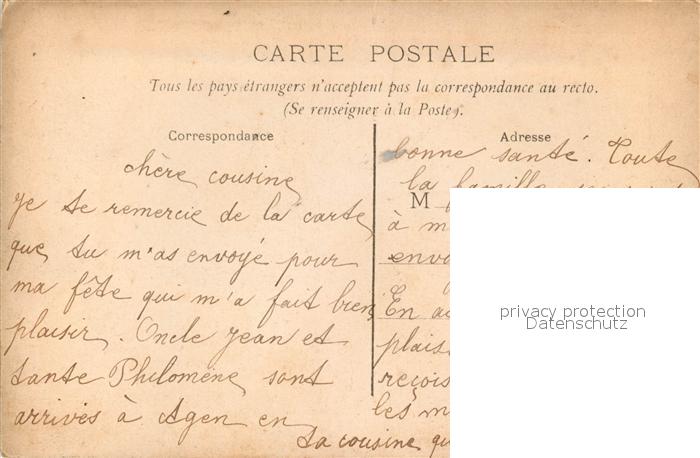 CARTE POSTALE
Tous les pays étrangers n'acceptent pas la correspondance au recto.
(Se renseigner à la Poste).
Correspondance
chère cousine
je te remercie de la carte
que tu m'as envoyé pour
ma fête qui m'a fait bien
plaisir. Oncle Jean et
tante Philomène sont
arrivés à Agen en
Adresse
bonne santé. Toute
la famille
M
à m
envo
En a
plais
reçois
les m
ta cousine qu
privacy protection
Datenschutz